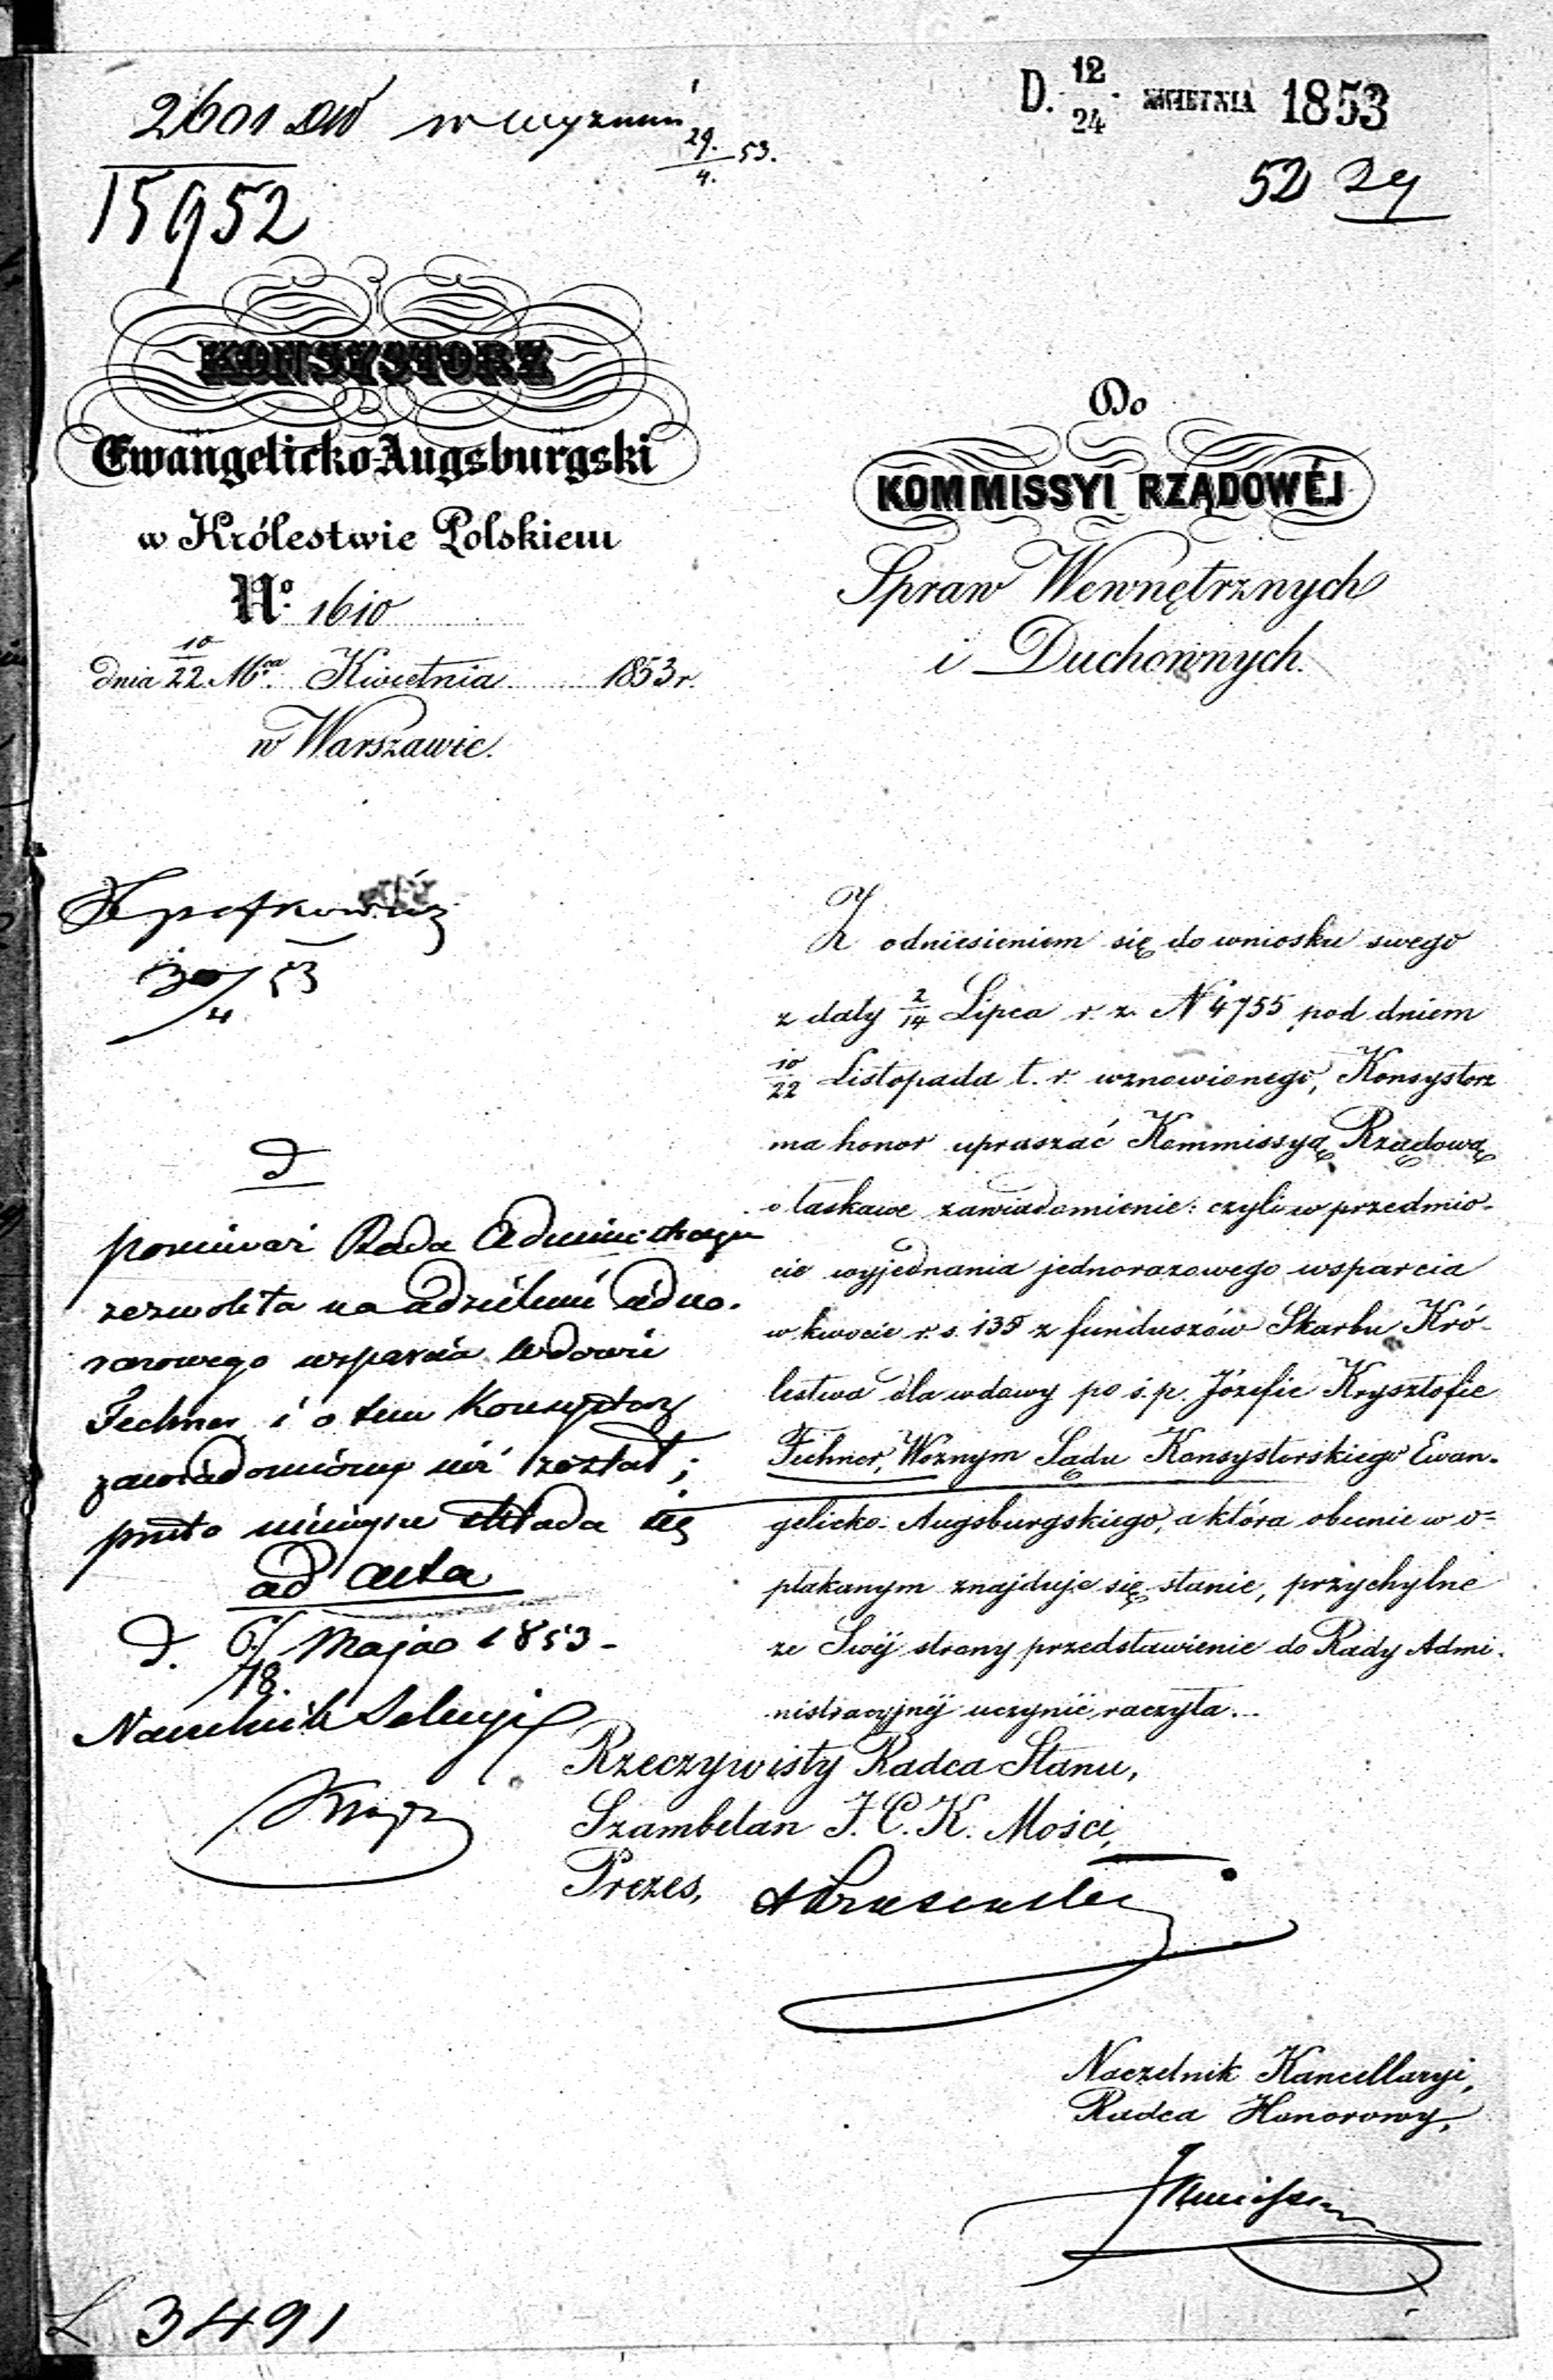 2601
w wyznań
29./4. 53.
15952
D. 12/24 KWIETNIA 1853
52 29
KONSYSTORZ
Ewangelicko Augsburgski
w Królestwie Polskiem
No. 1610
dnia 10/22 Mca. Kwietnia 1853 r.
w Warszawie.
30/4 53
d
ponieważ Rada Administracyjna
zezwoliła na udzielenie jedno-
razowego wsparcia wdowie
Fechner i o tem Konsystorz
zawiadomiony już został;
przeto niniejsze składa się
ad acta
d. 6/18. Maja 1853 -
Naczelnik Sekcyi
Do
KOMMISSYI RZĄDOWÉJ
Spraw Wewnętrznych
i Duchownych.
Z odniesieniem się do wniosku swego
z daty 2/14 Lipca r. z. N 4755 pod dniem
10/22 Listopada t. r. wznowionego, Konsystorz
ma honor upraszać Kommissyą Rządową
o łaskawe zawiadomienie: czyli w przedmio-
cie wyjednania jednorazowego wsparcia
w kwocie r. s. 135 z funduszów Skarbu Kró-
lestwa dla wdowy po ś. p. Józefie Krysztofie
Fechner, Woźnym Sądu Konsystorskiego Ewan-
gelicko-Augsburgskiego, a która obecnie w o-
płakanym znajduje się stanie, przychylne
ze Swéj strony przedstawienie do Rady Admi-
nistracyjnéj uczynić raczyła.
Rzeczywisty Radca Stanu,
Szambelan J. C. K. Mości,
Prezes,
Naczelnik Kancellaryi,
Radca Honorowy,
L 3491